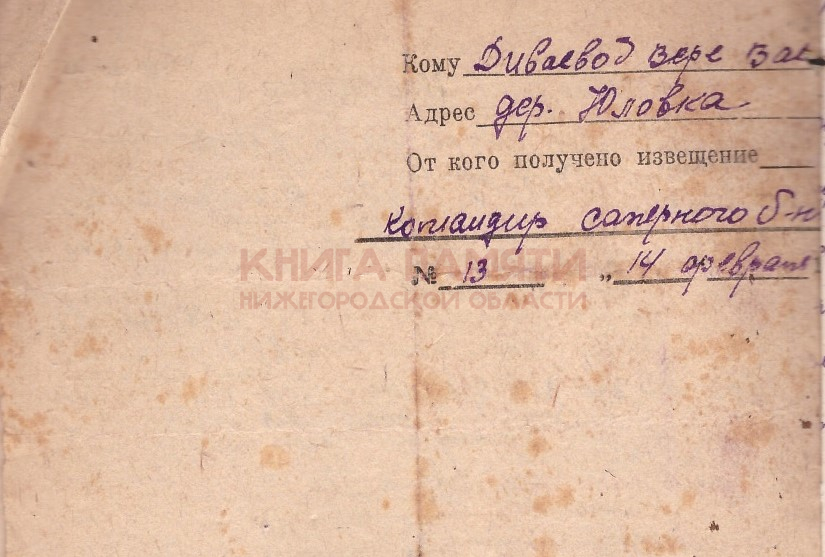 Кому Диваевой Вере Вас
Адрес дер. Юловка
От кого получено извещение
Командир саперного б-н
КНИГА ПАМЯТИ
№ 13 „14 февраля
НИЖЕГОРОДСКОЙ ОБЛАСТИ